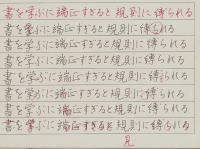 書を学ぶに端正すぎると規則に縛られる
書を学ぶに端正すぎると規則に縛られる
書を学ぶに端正すぎると規則に縛られる
書を学ぶに端正すぎると規則に縛られる
書を学ぶに端正すぎると規則に縛られる
書を学ぶに端正すぎると規則に縛られる
書を学ぶに端正すぎると規則に縛られる
書を学ぶに端正すぎると規則に縛られる
見